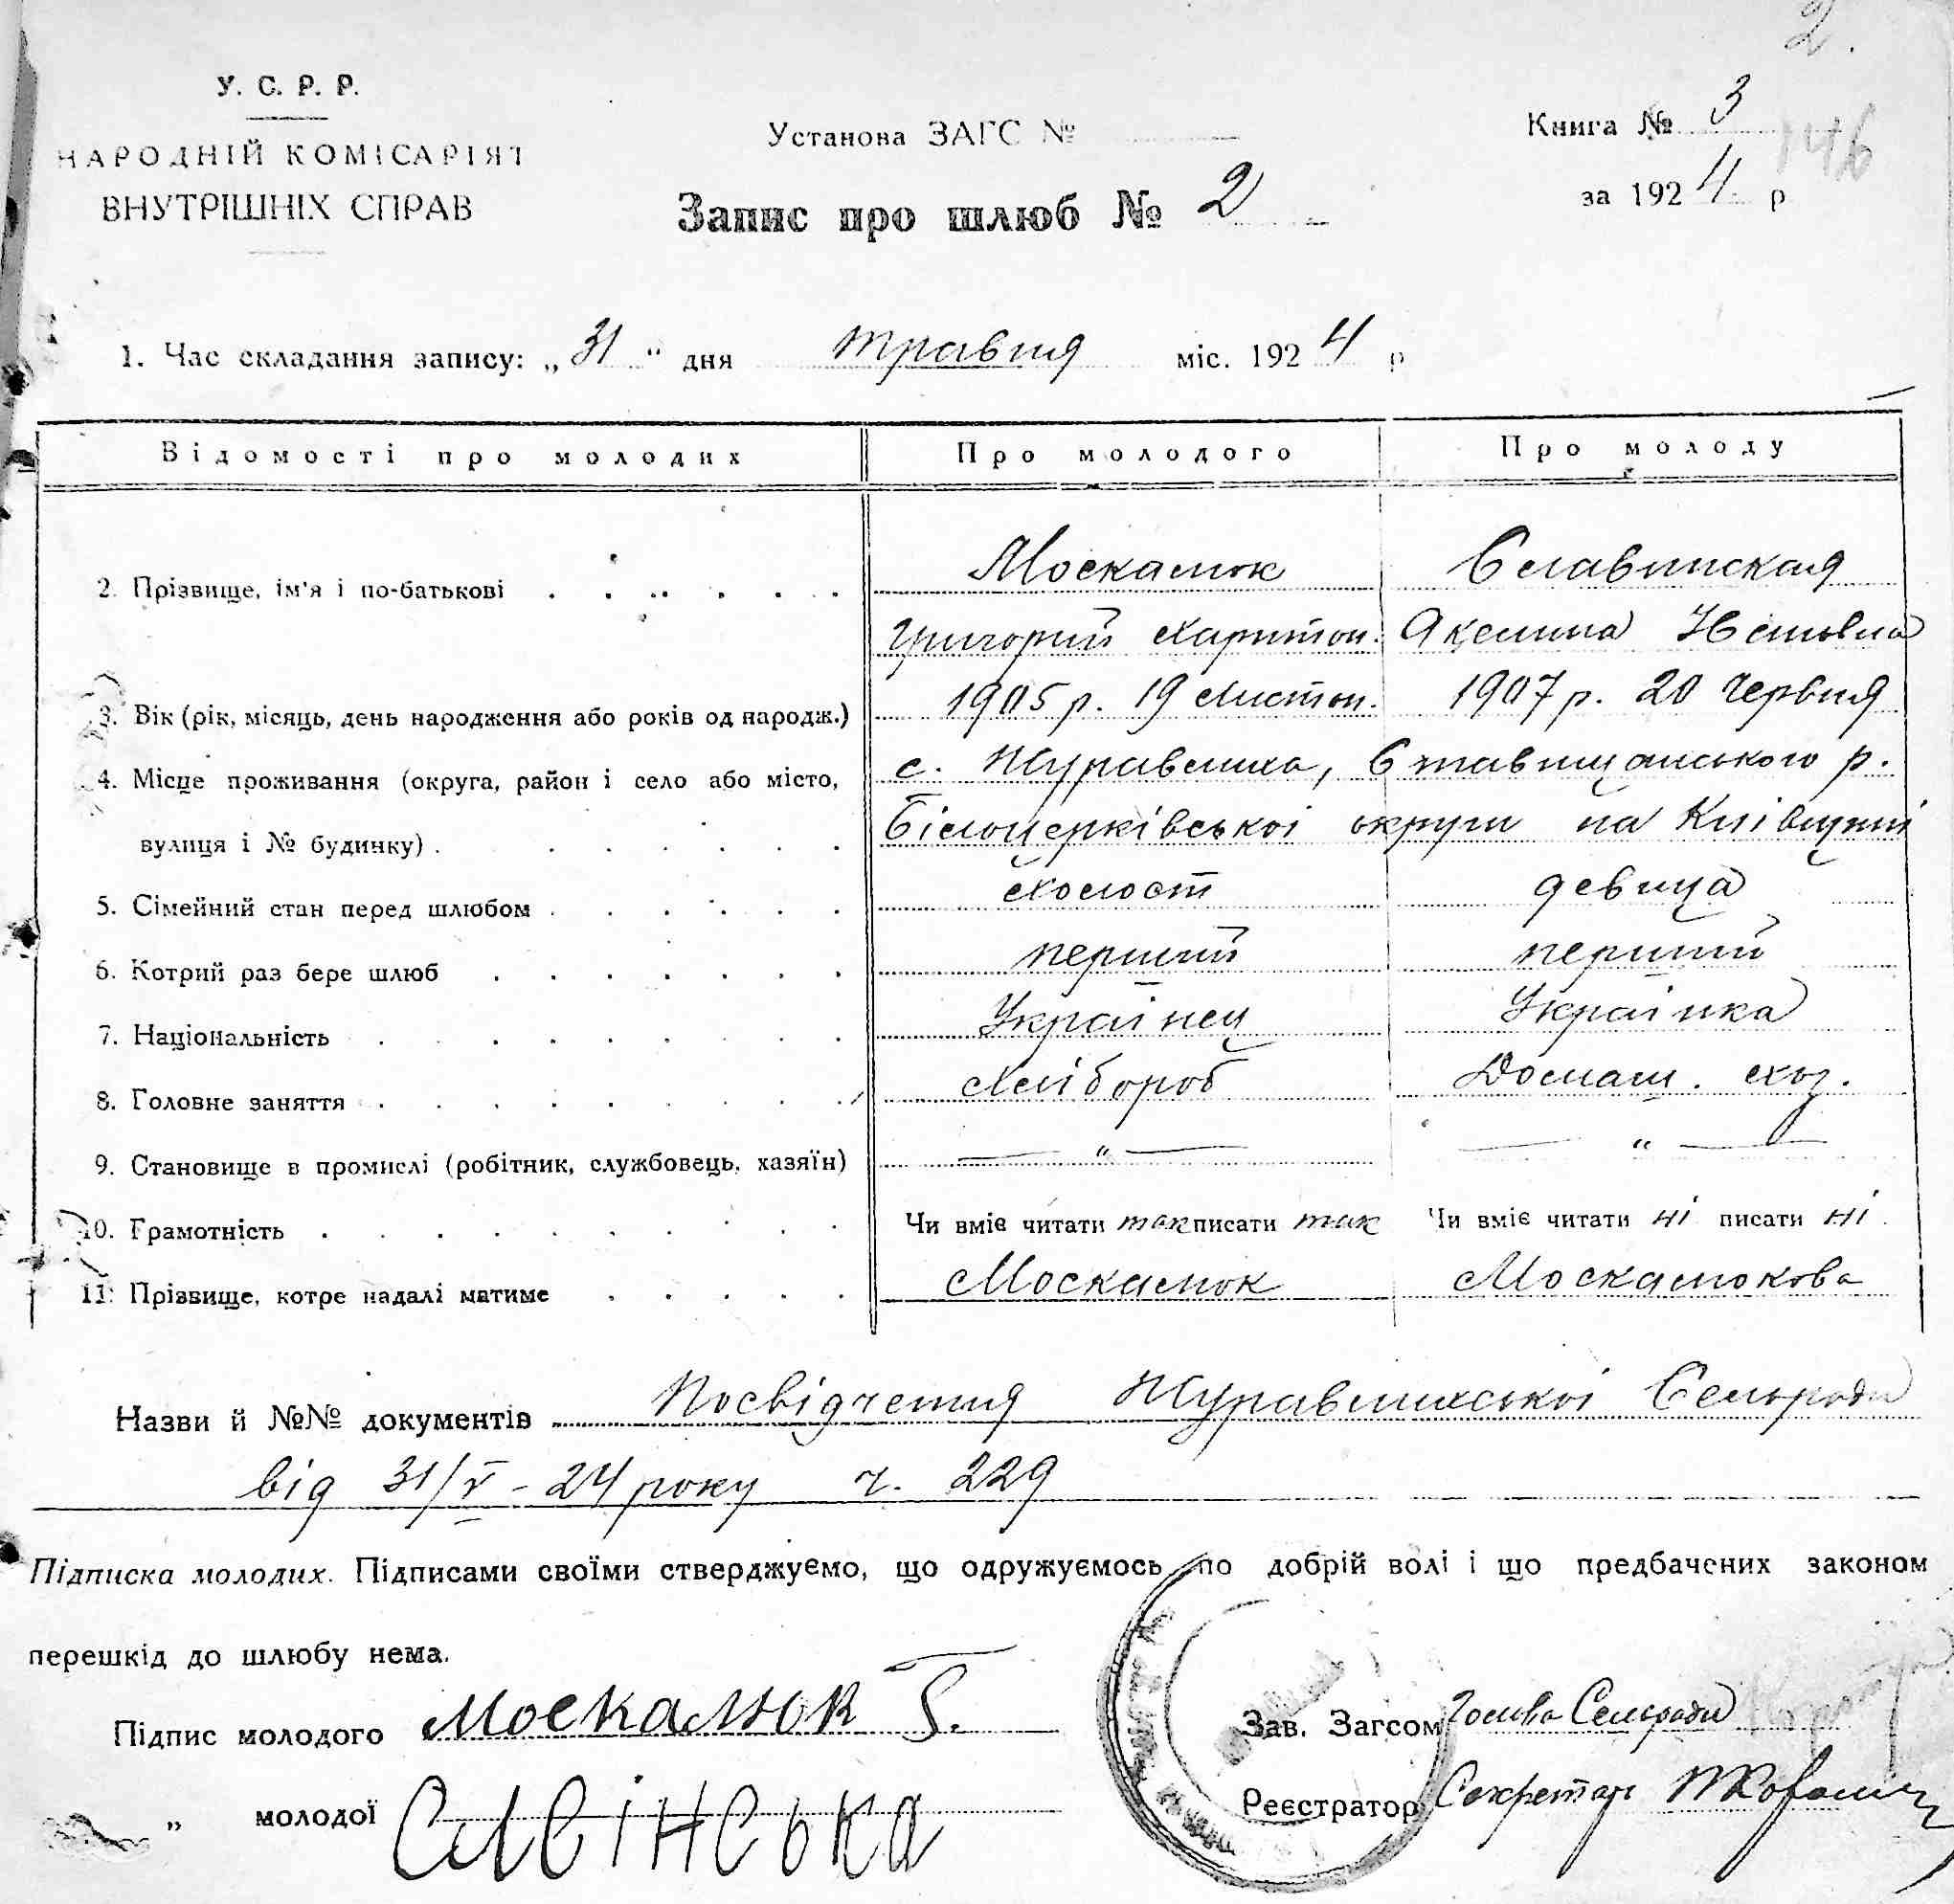 2.
У. С. Р. Р.
НАРОДНІЙ КОМІСАРІЯТ
ВНУТРІШНІХ СПРАВ
Установа ЗАГС №
Запис про шлюб № 2
Книга № 3
146
за 1924 р
1. Час складання запису: „31“ дня травня міс. 1924 р
Відомості про молодих Про молодого Про молоду
2. Прізвище, ім'я і по-батькові Москалюк Славинская
Григорий Харитон. Акелина
3. Вік (рік, місяць, день народження або років од народж.) 1905 р. 19 Листоп. 1907 р. 20 Червня
4. Місце проживання (округа, район і село або місто, с. Журавлиха, Ставищанського р.
вулиця і № будинку) Білоцерківськоі округи на Киівщині
5. Сімейний стан перед шлюбом Холост девица
6. Котрий раз бере шлюб перший перший
7. Національність Украінец Украінка
8. Головне заняття Хлібороб Домаш. хоз.
9. Становище в промислі (робітник, службовець, хазяїн) — „ — — „ —
10. Грамотність Чи вміє читати так писати так Чи вміє читати ні писати ні
11. Прізвище, котре надалі матиме Москалюк Москалюкова
Назви й №№ документів Посвідчення Журавлихськоі Сельради
від 31/V - 24 року ч. 229
Підписка молодих. Підписами своїми стверджуємо, що одружуємось по добрій волі і що предбачених законом
перешкід до шлюбу нема.
Підпис молодого Москалюк Г.
Зав. Загсом Голова Сельради
„ молодої Слвінська
Реєстратор Секретарь